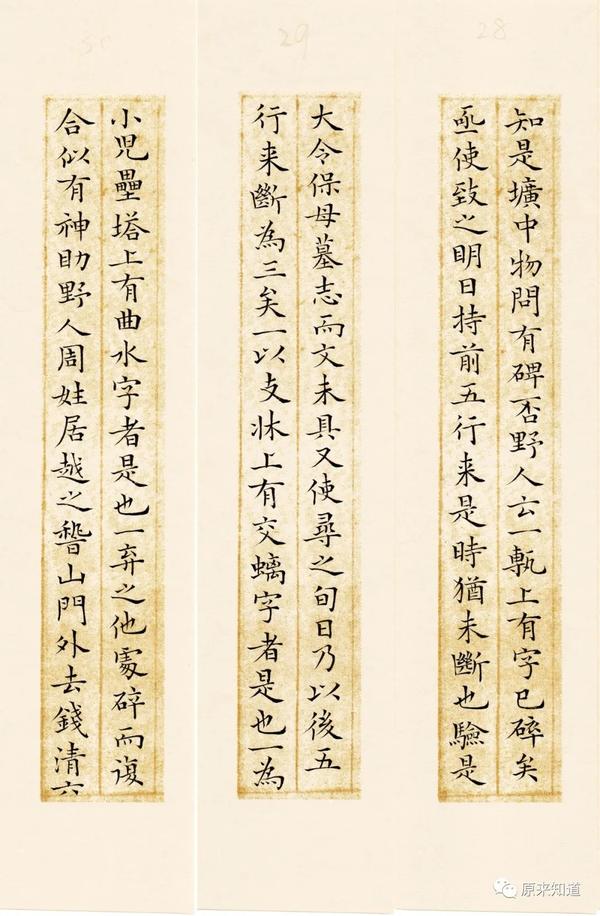 28
知是壙中物問有碑否野人云一甎上有字已碎矣
亟使致之明日持前五行来是時猶未斷也驗是
29
大令保母墓志而文未具又使尋之旬日乃以後五
行来斷為三矣一以支牀上有交螭字者是也一為
小児壘塔上有曲水字者是也一弃之他處碎而復
合似有神助野人周姓居越之稽山門外去錢清六
原来知道